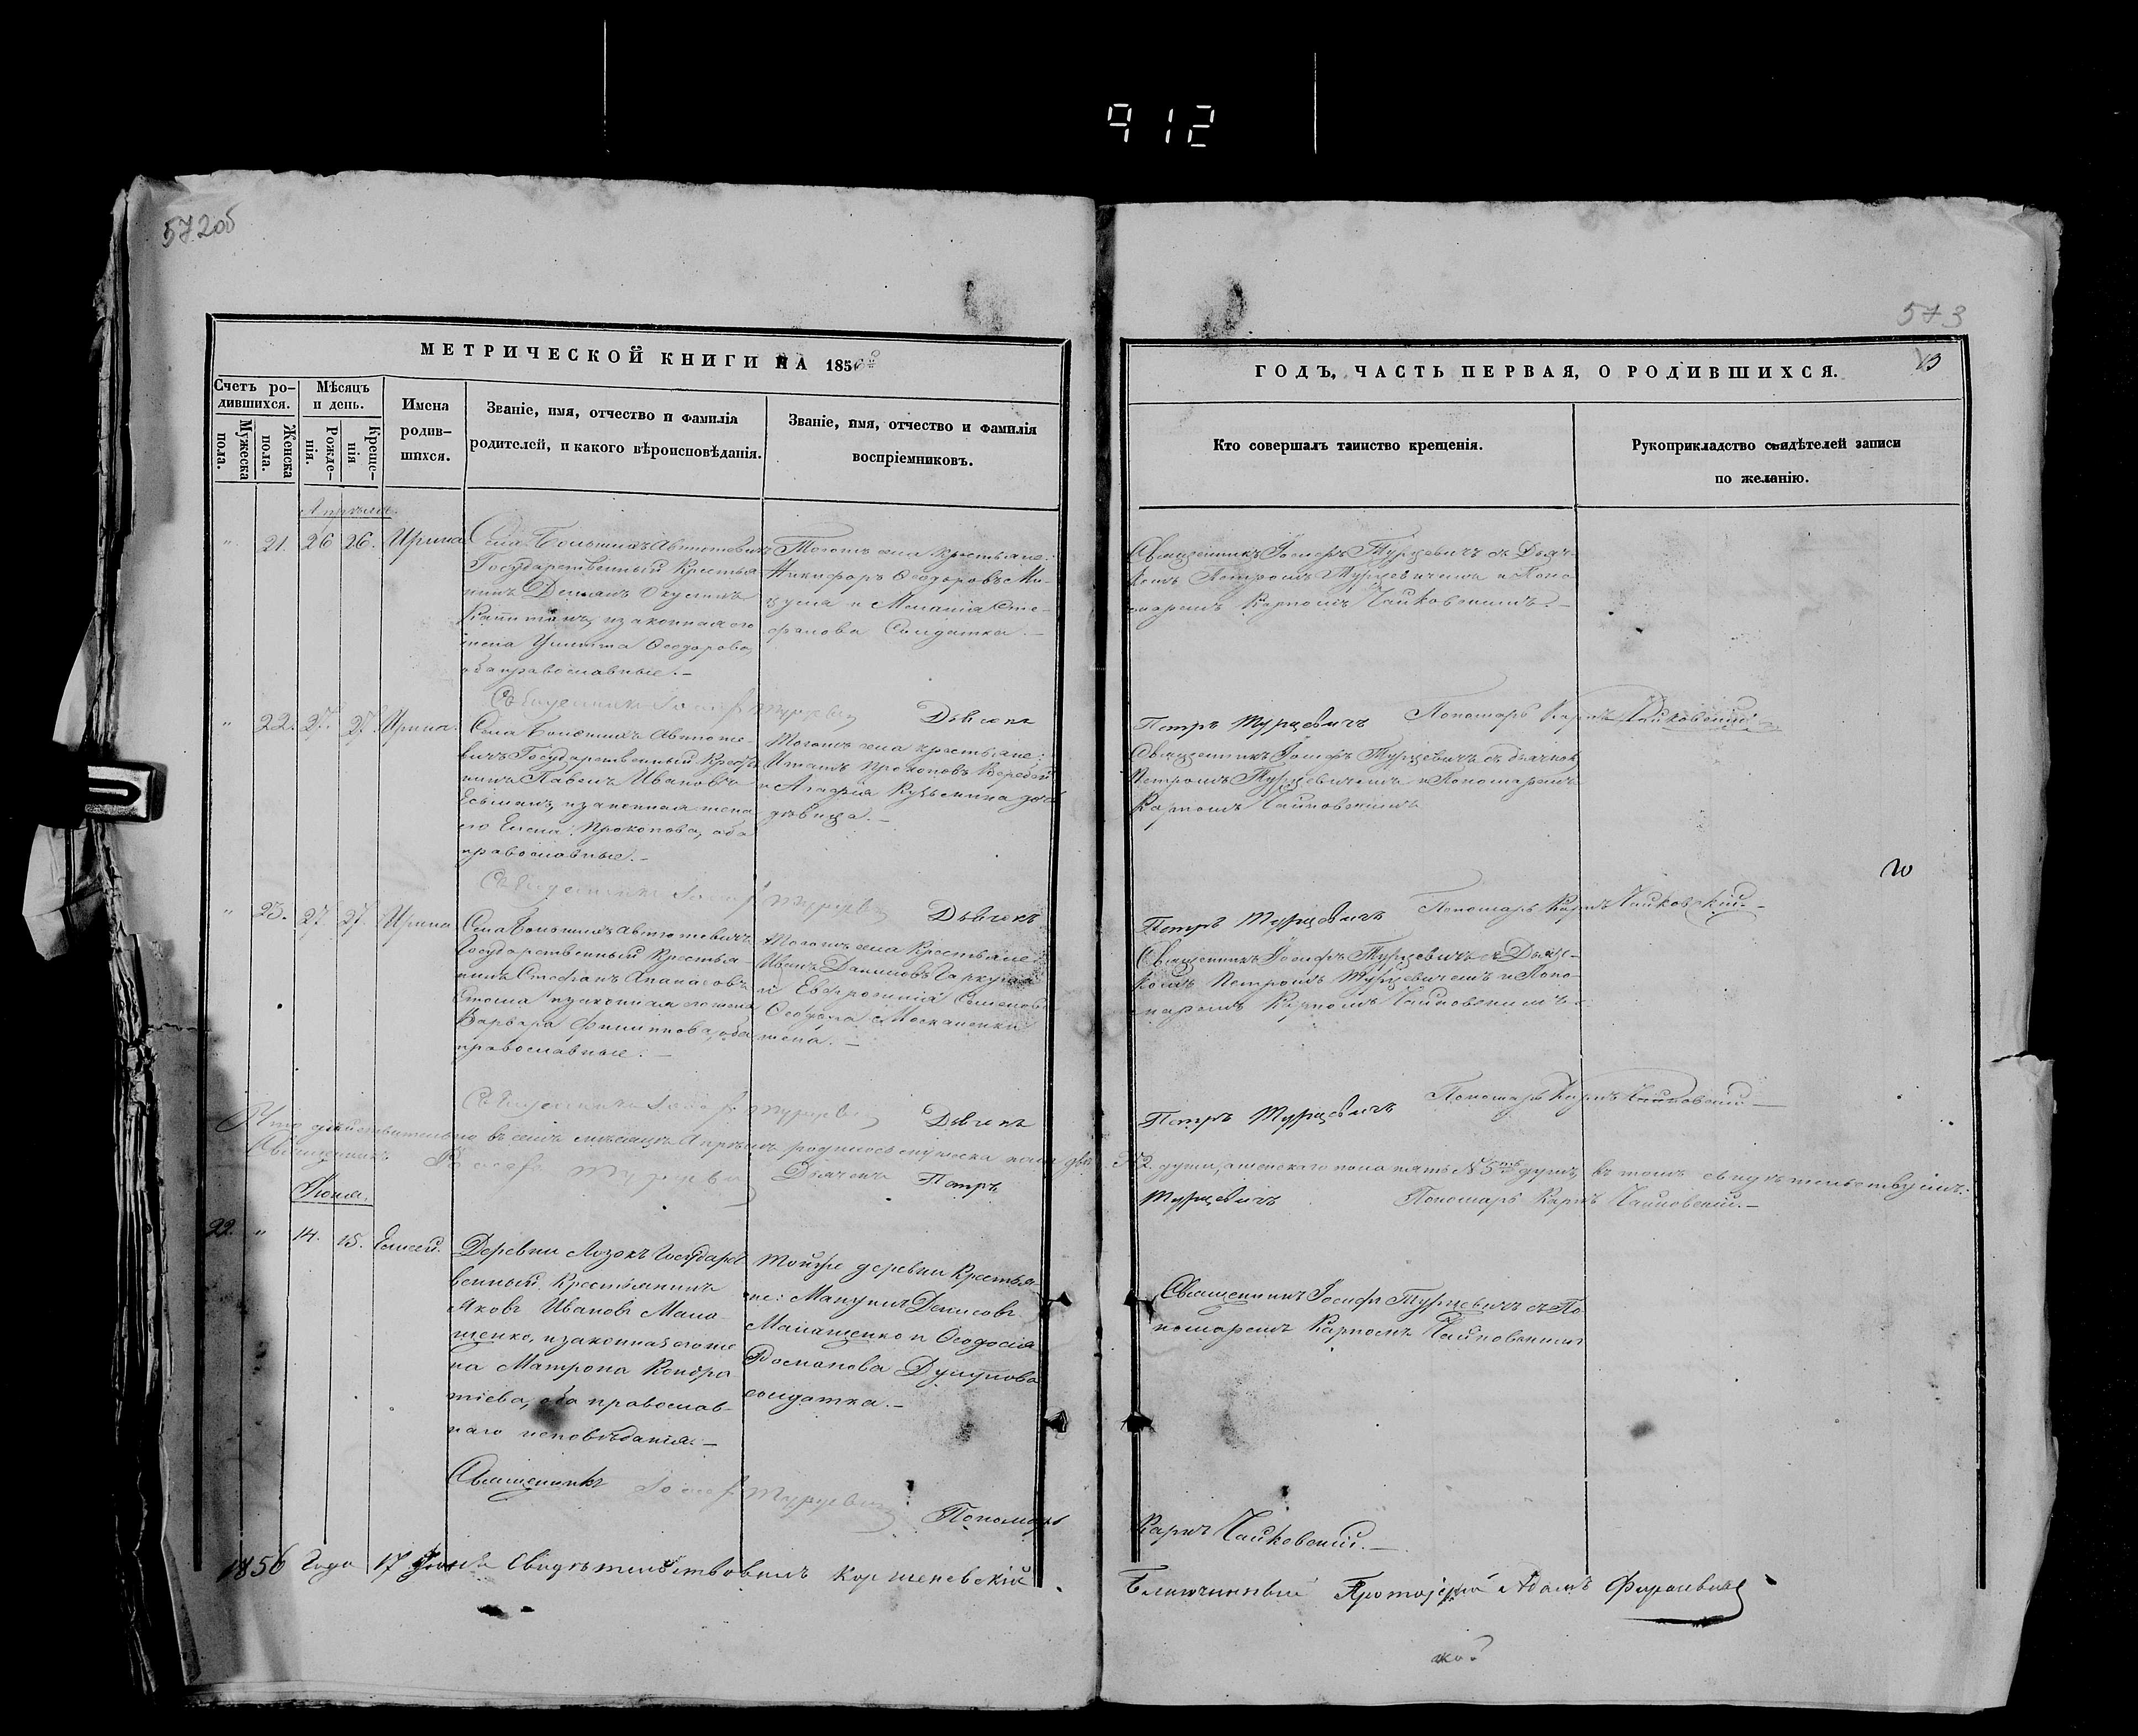 912
572об
573
МЕТРИЧЕСКОЙ КНИГИ НА 1856й
ГОДЪ, ЧАСТЬ ПЕРВАЯ, О РОДИВШИХСЯ.
Счетъ ро-
дившихся.
Мужеска
пола.
Женска
пола.
Мѣсяцъ
и день.
Рожде-
нія.
Креще-
нія
Имена
родив-
шихся.
Званіе, имя, отчество и фамилія
родителей, и какого вѣроисповѣданія.
Званіе, имя, отчество и фамилія
воспріемниковъ.
Кто совершалъ таинство крещенія.
Рукоприкладство свидѣтелей записи
по желанію.
Апрѣля.
" 21. 26 26. Ирина
Села Большихъ Автютевичъ
Государственный Крестья-
нинъ Демьянъ
и законная его
жена Ѳеодорова,
оба православные.-
Тогожъ села крестьяне:
Никифоръ Ѳеодоровъ
и Меланія Сте-
фанова Солдатка.-
Священникъ Іосифъ Турцевичъ съ Дьяч-
комъ Петромъ Турцевичемъ и Поно-
маремъ Карпомъ Чайковскимъ.-
Священникъ Іосиф Турцевич Дьячекъ
Петръ Турцевичъ Пономарь Карпъ Чайковский
" 22. 27. 27. Ирина.
Села Большихъ Автюте-
вичъ Государственный Кресть
нинъ Павелъ Ивановъ
и законная жена
его Елена Прокопова, оба
православные.-
Тогожъ села крестьяне:
Игнатъ Прокоповъ
и Агафія Кузьмина
дѣвица.-
Священникъ Іосифъ Турцевичъ съ Дьячком
Петромъ Турцевичемъ и Пономаремъ
Карпомъ Чайковскимъ
Священникъ Іосиф Турцевич Дьячекъ
Петръ Турцевичъ Пономарь Карпъ Чайковскій
" 23. 27. 27. Ирина
Села Большихъ Автютевичъ
Государственный Крестья-
нинъ Стефанъ
и законная его жена
Варвара Филиппова, оба
православные.-
Тогожъ села Крестьяне:
Иванъ Даниловъ
и Евфросинія
жена.-
Священникъ Іосифъ Турцевичъ съ Дьяч-
комъ Петромъ Турцевичемъ и Поно-
маремъ Карпомъ Чайковскимъ.-
Священникъ Іосиф Турцевич Дьячекъ
Петръ Турцевичъ Пономарь Карпъ Чайковский
Что дѣйствительно въ семъ мѣсяцѣ Апрѣлѣ родилось мужеска пола двѣ №2. души, а женскаго пола пять №5ть душъ, въ томъ свидѣтельствуемъ:
Священникъ Іосиф Турцевич Дьячекъ Петръ
Турцевичъ Пономарь Карпъ Чайковский.-
22. " 14. 15. Елисей.
Деревни Лозокъ Государст
венный Крестьянинъ
Яковъ Ивановъ Мала-
щенко, и законная его же
на Матрона Кондра
тіева, оба православ-
наго исповѣданія.-
Тойже деревни Крестья-
не: Денисовъ
Малащенко и Ѳеодосія
Романова
солдатка.-
Священникъ Іосифъ Турцевичъ съ По
номаремъ Карпомъ Чайковскимъ
Священникъ Іосиф Турцевич Пономарь
Карпъ Чайковский.-
1856 Года 17 Свидѣтельствовалъ
Благочинный Протоіерей Адамъ